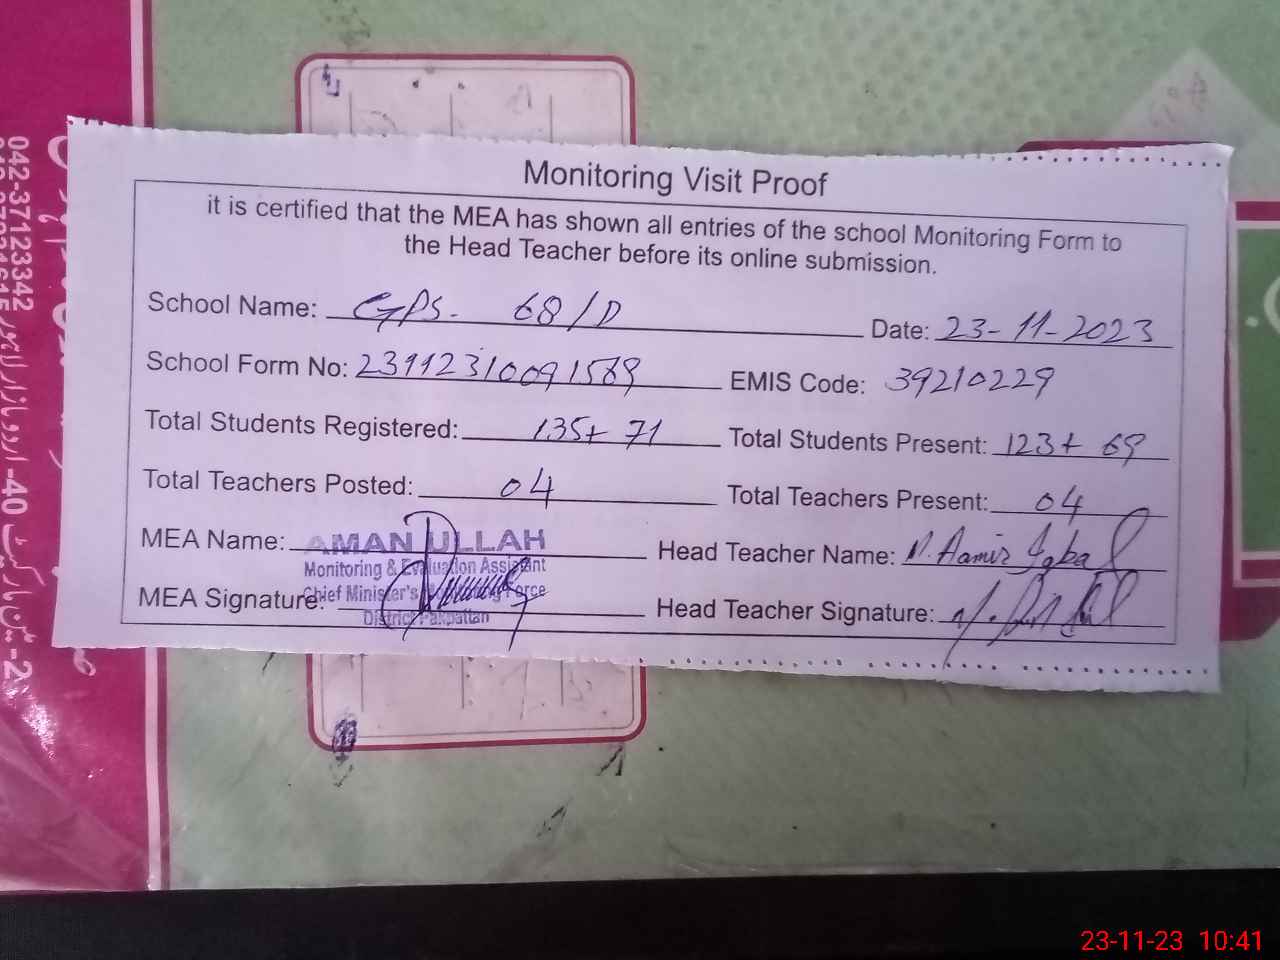 Monitoring Visit Proof
it is certified that the MEA has shown all entries of the school Monitoring Form to
the Head Teacher before its online submission.
School Name: GPS. 68/D Date: 23-11-2023
School Form No: 23112310091589 EMIS Code: 39210229
Total Students Registered: 135+ 71 Total Students Present: 123+ 69
Total Teachers Posted: 04 Total Teachers Present: 04
MEA Name: AMAN ULLAH Head Teacher Name: M. Aamir Iqbal
Monitoring & Evaluation Assistant
Chief Minister's Monitoring Force
District Pakpattan
MEA Signature: Head Teacher Signature:
042-37123342
23-11-23 10:41